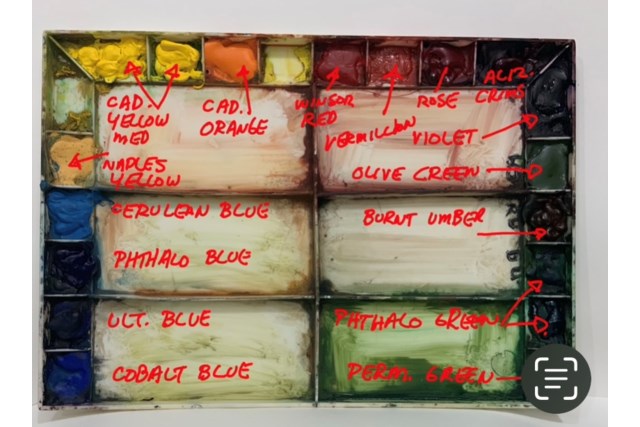 CAD.
YELLOW
MED
CAD.
ORANGE
WINSOR
RED
VERMILLION
ROSE
ALIZ.
CRIMS
VIOLET
NAPLES
YELLOW
OLIVE GREEN
CERULEAN BLUE
BURNT UMBER
PHTHALO BLUE
ULT. BLUE
PHTHALO GREEN
COBALT BLUE
PERM. GREEN